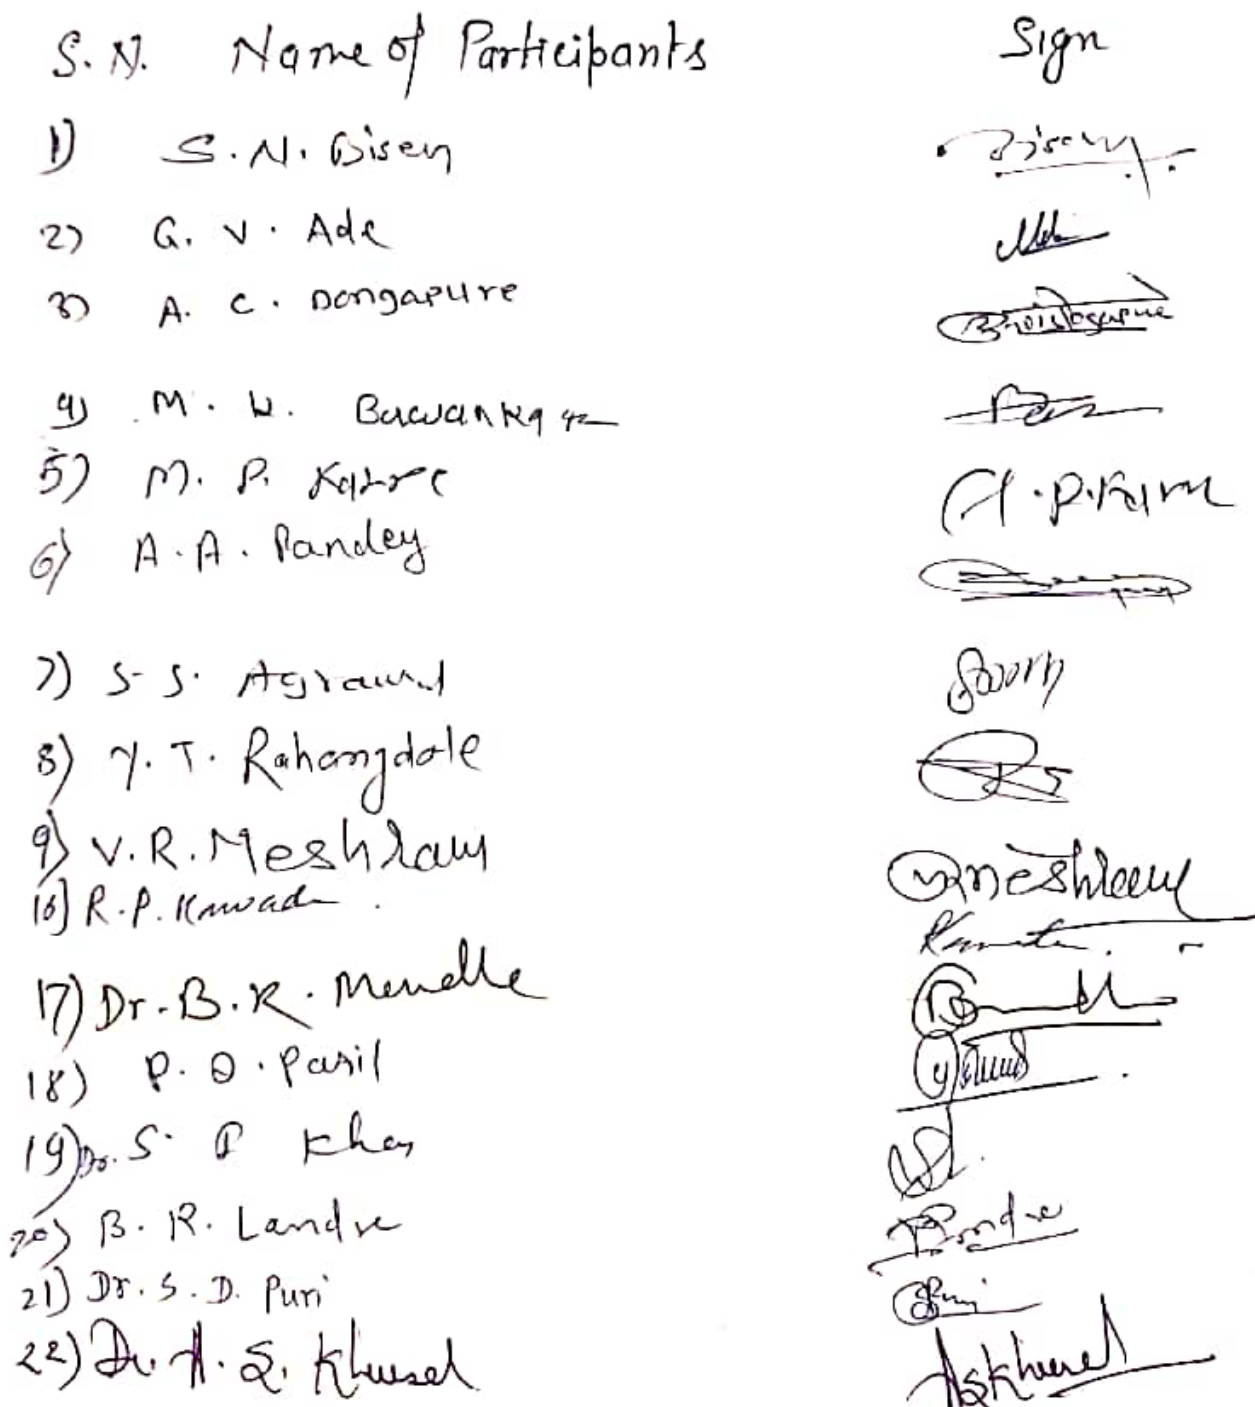 S.N. Name of Participants Sign
1) S.N. Bisen Bisen
2) G. V. Ade
3) A. C. Dongapure
4) M. W. Bawankar
5) M. P. Katre
6) A. A. Pandey
7) S. S. Agrawal
8) Y. T. Rahangdale
9) V. R. Meshram Meshram
10) R. P. Kawade
17) Dr. B. K.
18) P. D. Patil
19) Dr. S. P Khan
20) B. R. Landre
21) Dr. S. D. Puri Puri
22) Dr. A. S. Khursel ASKhursel